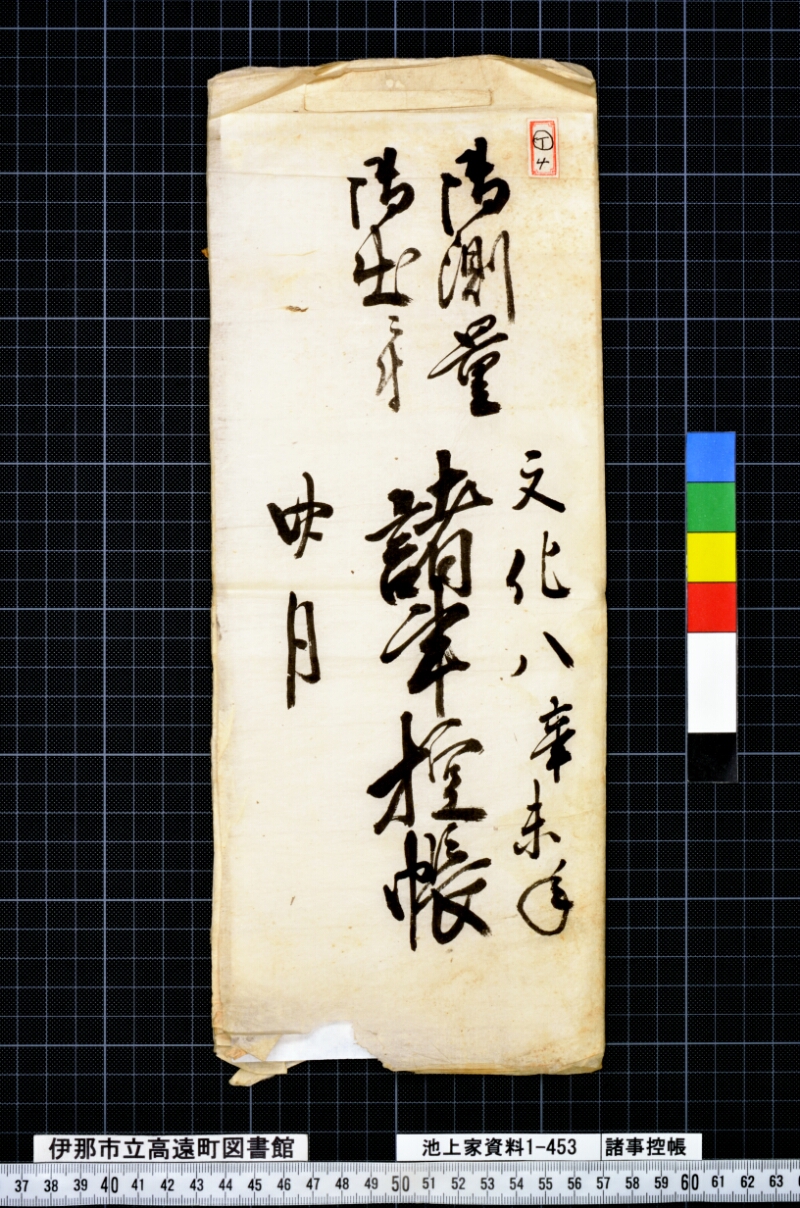 4
文化八辛未年
御測量
御出ニ付
諸事控帳
四月
伊那市立高遠町図書館
池上家資料1-453
諸事控帳
37 38 39 40 41 42 43 44 45 46 47 48 49 50 51 52 53 54 55 56 57 58 59 60 61 62 63